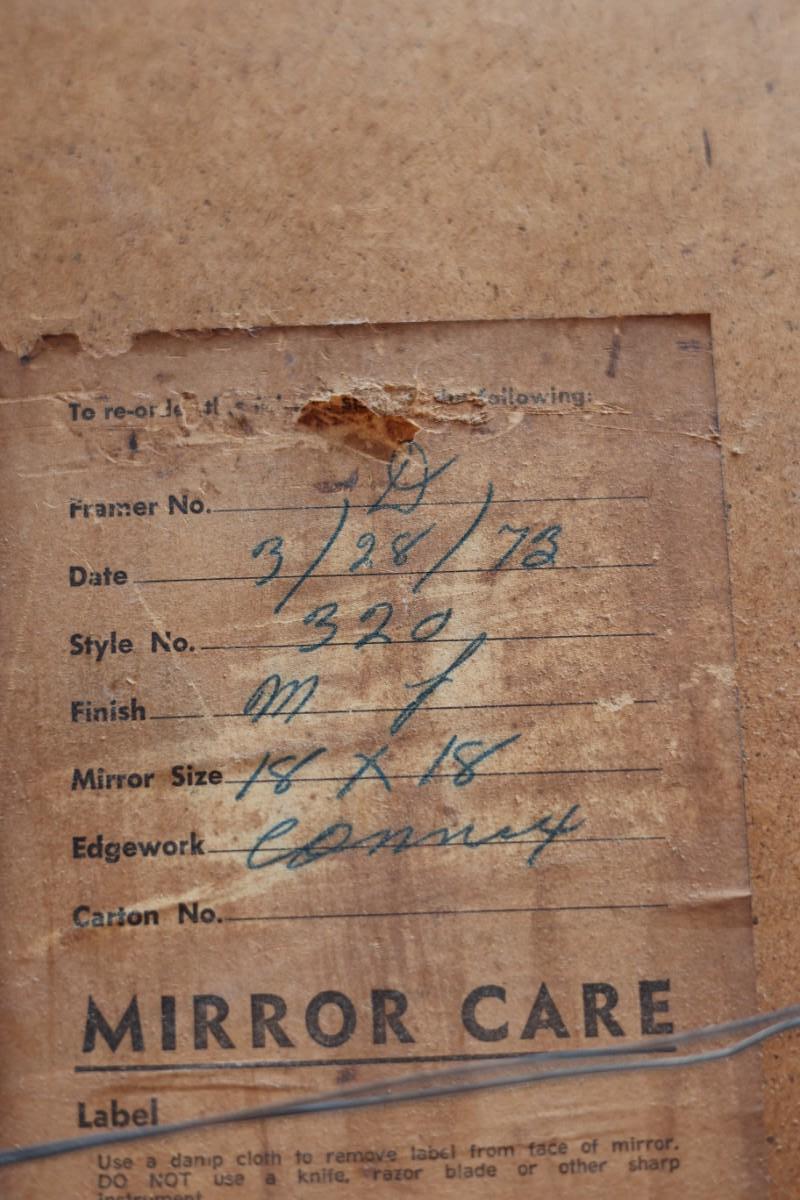 To re-order following:
Framer No. D
Date 3/28/73
Style No. 320
Finish M f
Mirror Size 18 X 18
Edgework Connex
Carton No.
MIRROR CARE
Label
Use a damp cloth to remove label from face of mirror.
DO NOT use a knife, razor blade or other sharp
instrument